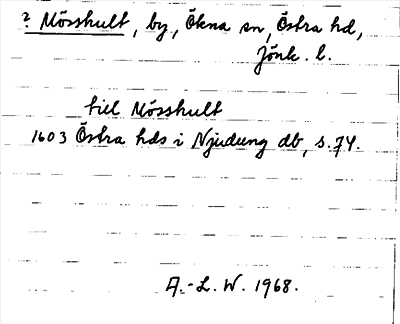 ? Mösshult, by, Ökna sn, Östra hd,
Jönk. l.
till Mösshult
1603 Östra hds i Njudung db, s. 74.
A.-L. W. 1968.